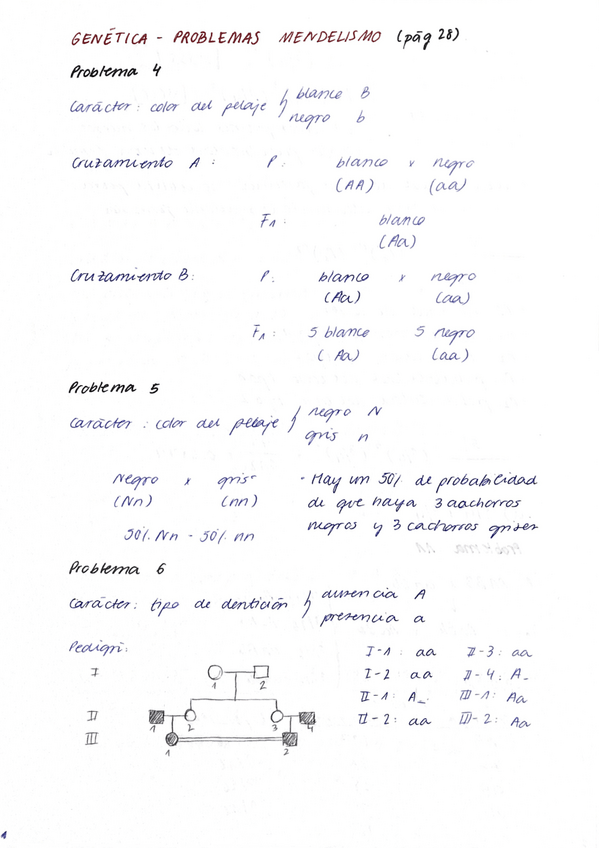 GENÉTICA - PROBLEMAS MENDELISMO (pág 28)
Problema 4
Carácter: color del pelaje blanco B
negro b
Cruzamiento A: P: blanco x negro
(AA) (aa)
F1: blanco
(Aa)
Cruzamiento B: P: blanco x negro
(Aa) (aa)
F1: 5 blanco 5 negro
(Aa) (aa)
Problema 5
Carácter: color del pelaje negro N
gris n
Negro x gris - Hay un 50% de probabilidad
(Nn) (nn) de que haya 3 aachorros
50% Nn - 50% nn negros y 3 cachorros grises
Problema 6
Carácter: tipo de dentición ausencia A
presencia a
Pedigrí: I-1: aa II-3: aa
I 1 2 I-2 aa II-4: A_
II-1: A_ III-1: Aa
II 1 2 3 4 II-2: aa III-2: Aa
III 1 2
1